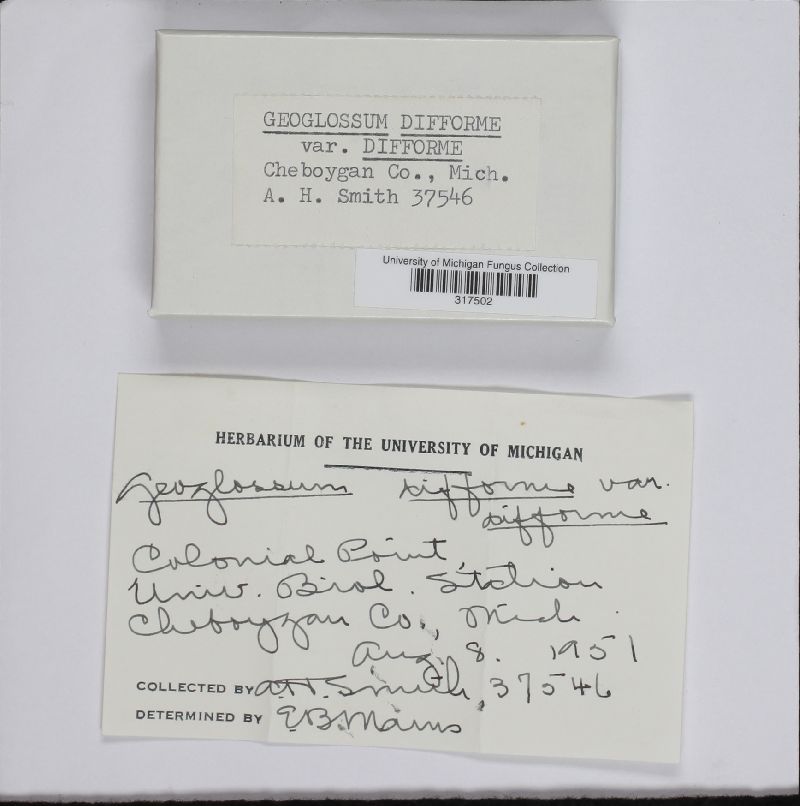 GEOGLOSSUM DIFFORME
var. DIFFORME
Cheboygan Co., Mich.
A. H. Smith 37546
University of Michigan Fungus Collection
317502
HERBARIUM OF THE UNIVERSITY OF MICHIGAN
Geoglossum difforme var.
difforme
Colonial Point,
Univ. Biol. Station
Cheboygan Co., Mich.
Aug. 8. 1951
COLLECTED BY A.H. Smith, 37546
DETERMINED BY E.B. Mains